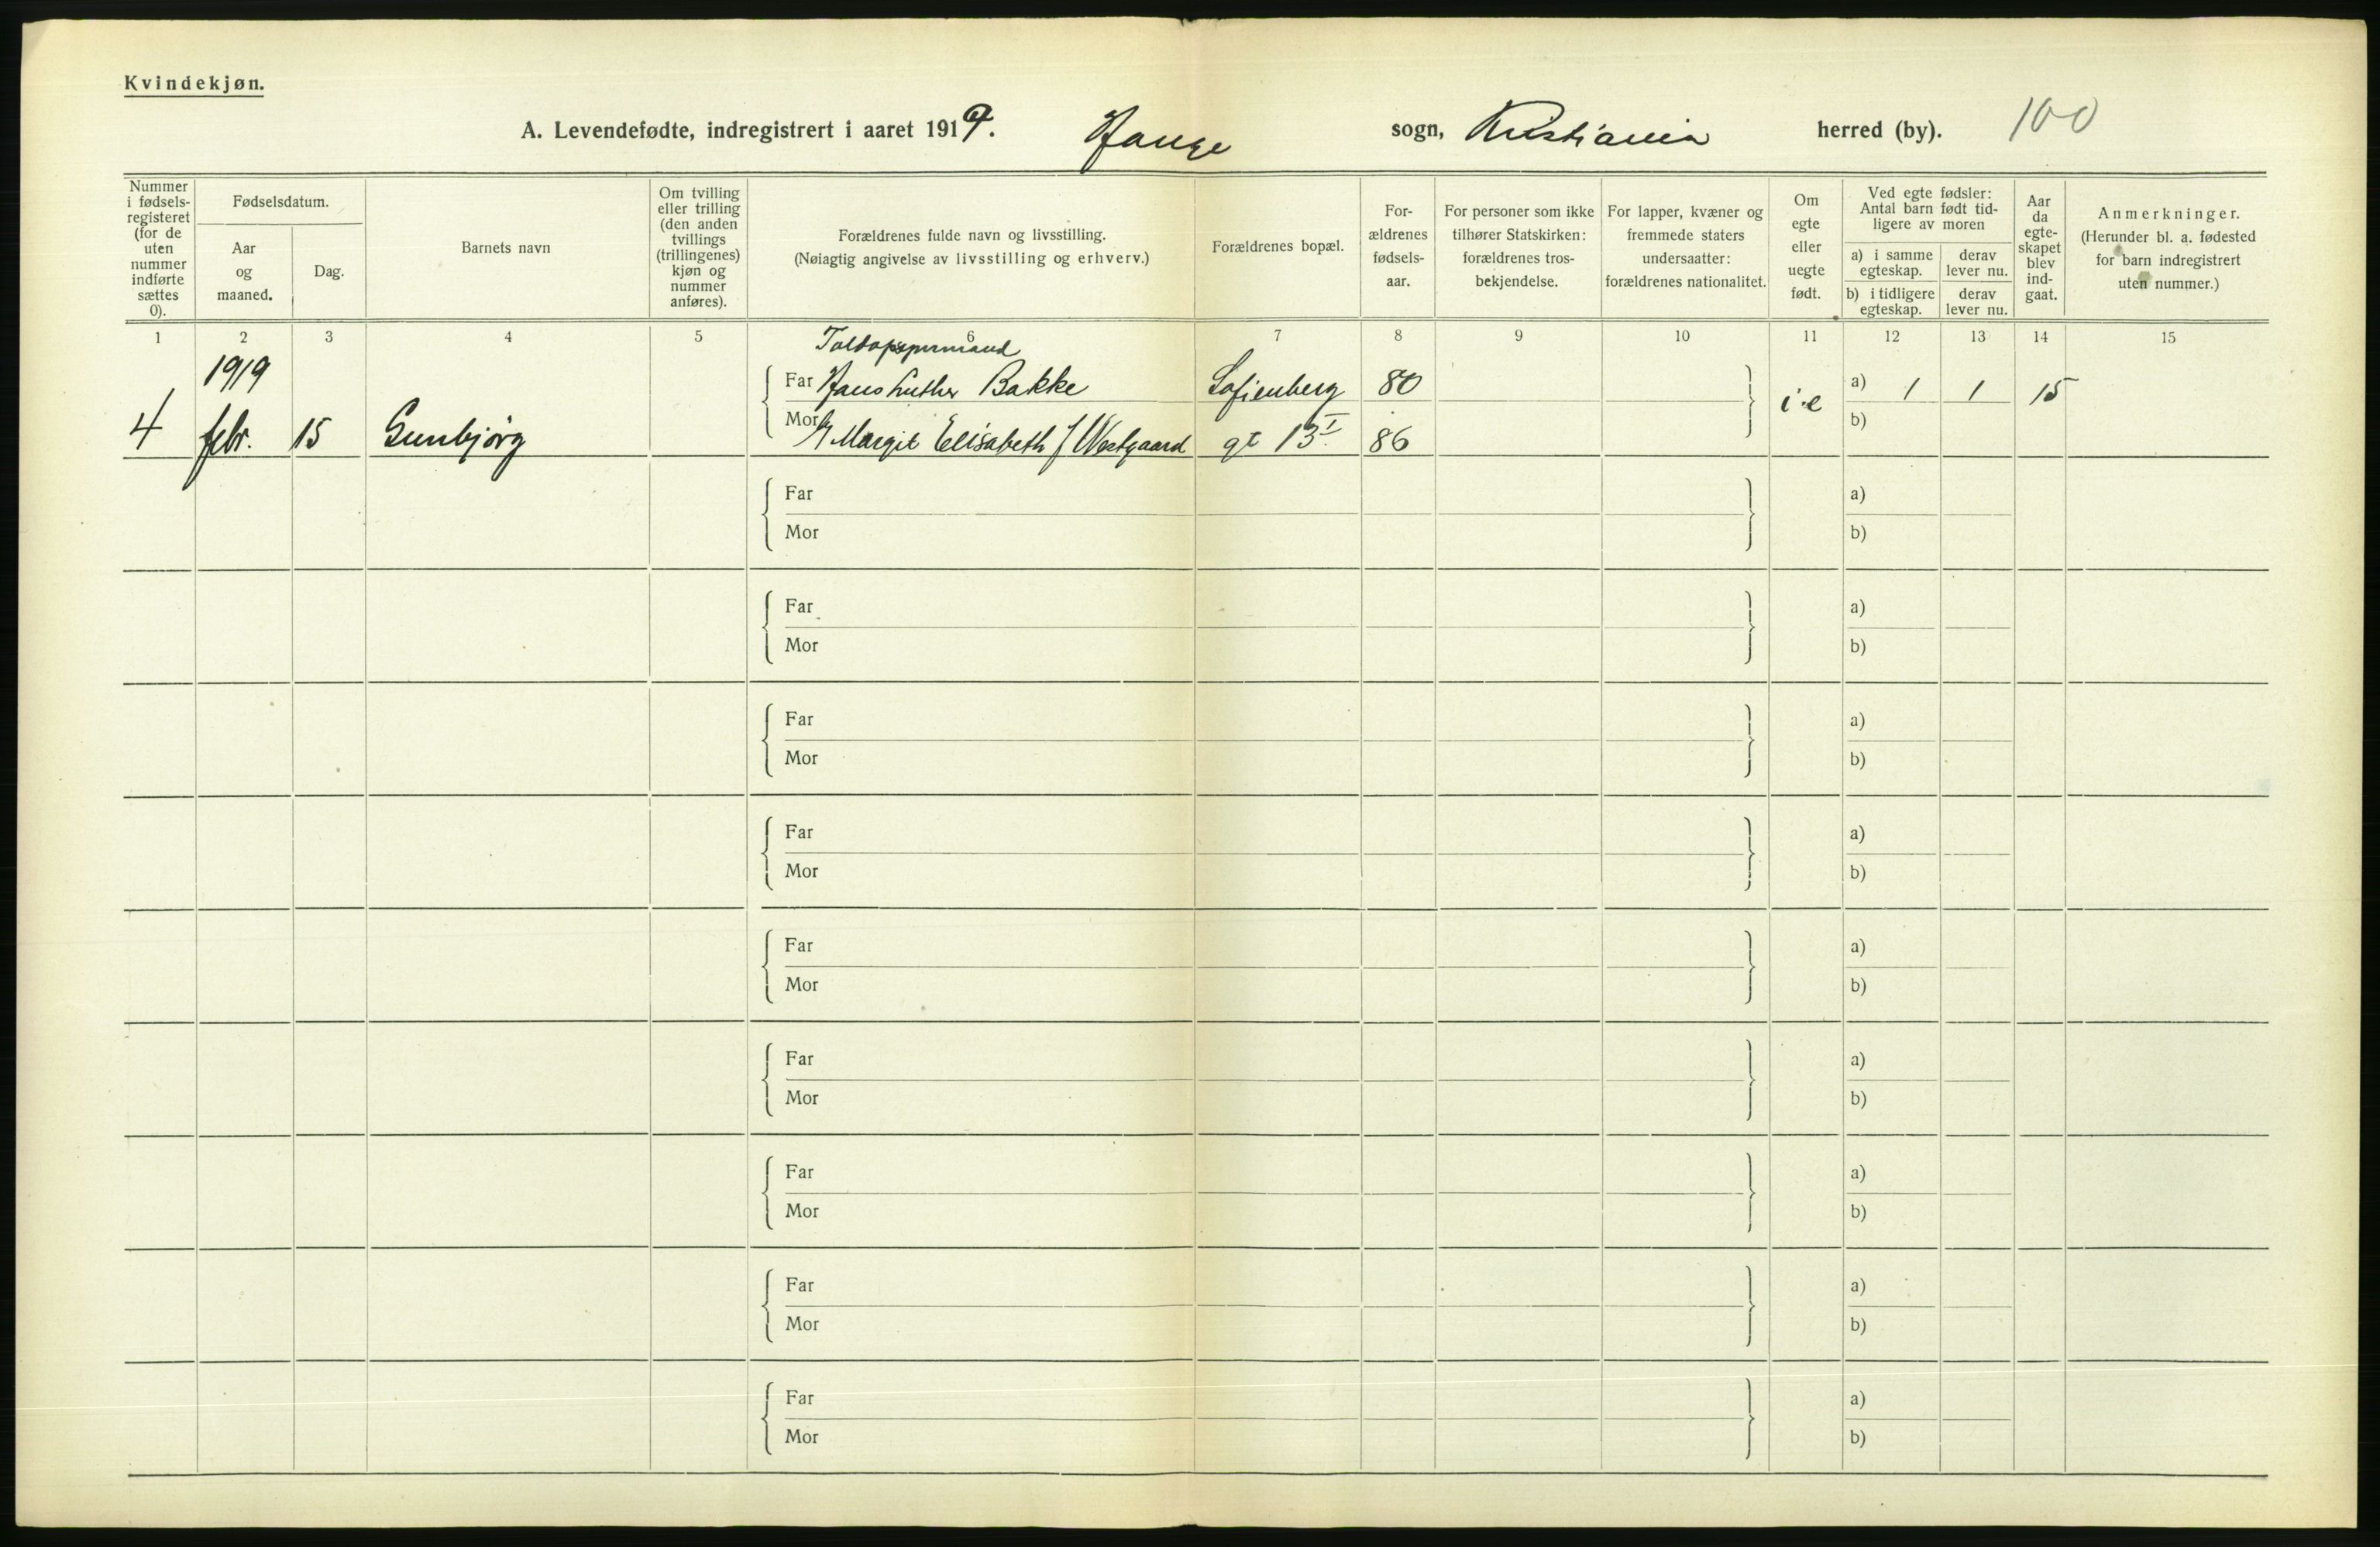 Kvindekjøn.
A. Levendefødte, indregistrert i aaret 1919. Hauge sogn, Kristiania herred (by). 100
Nummer i fødsels-registeret (for de uten nummer indførte sættes 0).
Fødselsdatum.
Aar og maaned.
Dag.
Barnets navn
Om tvilling eller trilling (den anden tvillings (trillingenes) kjøn og nummer anføres).
Forældrenes fulde navn og livsstilling.
(Nøiagtig angivelse av livsstilling og erhverv.)
Forældrenes bopæl.
For-ældrenes fødsels-aar.
For personer som ikke tilhører Statskirken: forældrenes tros-bekjendelse.
For lapper, kvæner og fremmede staters undersaatter: forældrenes nationalitet.
Om egte eller uegte født.
Ved egte fødsler: Antal barn født tid-ligere av moren
a) i samme egteskap.
derav lever nu.
b) i tidligere egteskap.
derav lever nu.
Aar da egte-skapet blev ind-gaat.
Anmerkninger.
(Herunder bl. a. fødested for barn indregistrert uten nummer.)
1 2 3 4 5 6 7 8 9 10 11 12 13 14 15
1919
Far Hans Luther Bakke Sofienberg 80 i e a) 1 1 15
4 febr. 15 Gunbjørg Mor Margit Elisabeth f Westgaard gt 13 I 86 b)
Far a)
Mor b)
Far a)
Mor b)
Far a)
Mor b)
Far a)
Mor b)
Far a)
Mor b)
Far a)
Mor b)
Far a)
Mor b)
Far a)
Mor b)
Far a)
Mor b)